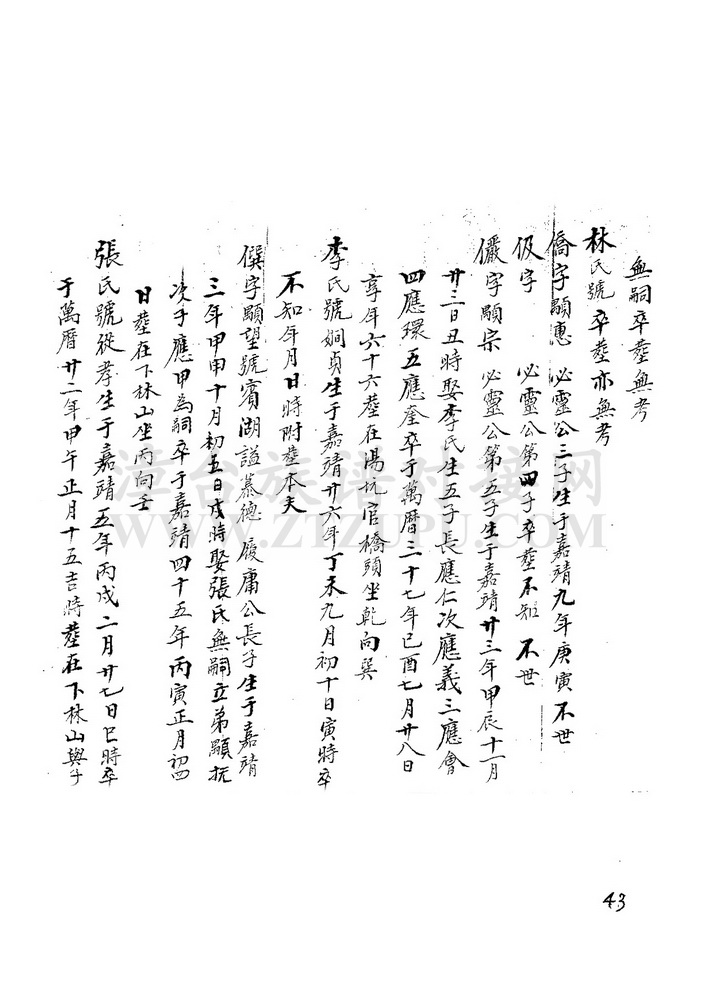 無嗣卒葬無考
林氏號 卒葬亦無考
僑字顯惠 必靈公三子生于嘉靖九年庚寅 不世
伋字 必靈公第四子卒葬不知 不世
儼字顯宗 必靈公第五子生于嘉靖廿三年甲辰十一月
廿三日丑時娶李氏生五子長應仁次應義三應會
四應環五應奎卒于萬曆三十七年己酉七月廿八日
享年六十六葬在陽坑官橋頭坐乾向巽
李氏號嫻貞生于嘉靖廿六年丁未九月初十日寅時卒
不知年月日時附葬本夫
僎字顯望號賓湖謚慕德 履庸公長子生于嘉靖
三年甲申十月初五日戌時娶張氏無嗣立弟顯抚
次子應甲為嗣卒于嘉靖四十五年丙寅正月初四
日葬在下林山坐丙向壬
張氏號從孝生于嘉靖五年丙戌二月廿七日巳時卒
于萬曆廿二年甲午正月十五吉時葬在下林山與子
漳台族谱对接网
WWW.ZTZUPU.COM
43